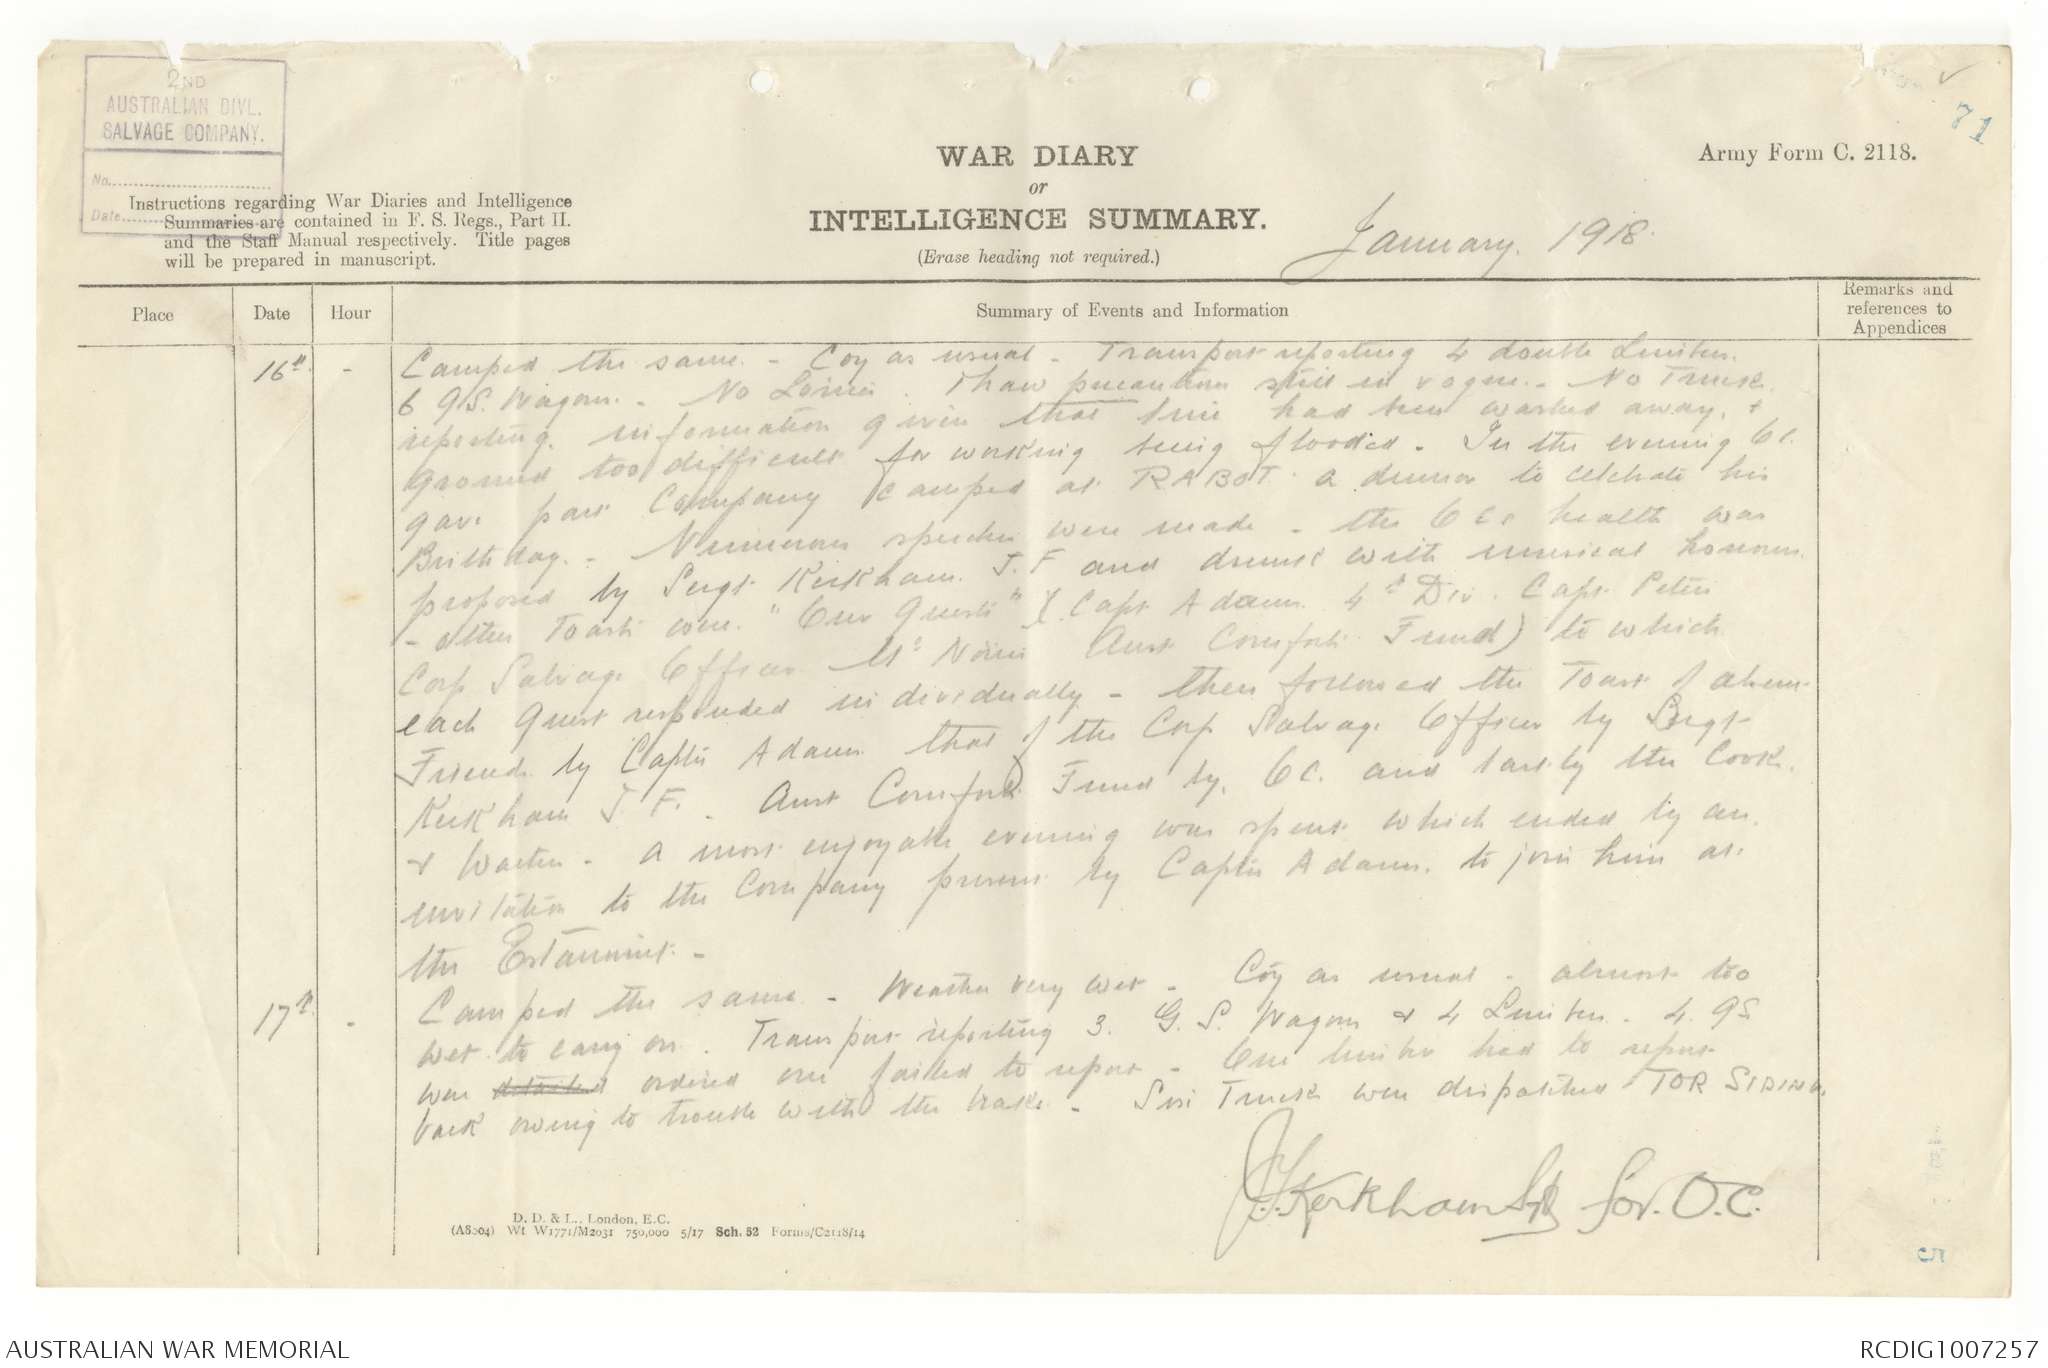 2ND
AUSTRALIAN DIVL.
SALVAGE COMPANY.
No.
Date
Instructions regarding War Diaries and Intelligence
Summaries are contained in F. S. Regs., Part II.
and the Staff Manual respectively. Title pages
will be prepared in manuscript.
WAR DIARY
or
INTELLIGENCE SUMMARY.
(Erase heading not required.)
January. 1918.
Army Form C. 2118.
71
Place
Date
Hour
Summary of Events and Information
Remarks and
references to
Appendices
16th. - Camped the same. - Coy as usual - Transport reporting 4 double Limbers.
6 G.S. Wagons. - No Lorries. Thaw precautions still in vogue. - No Truck
reporting. information given that line had been washed away. +
ground too difficult for working being flooded. - In the evening O.C.
gave part Company camped at RABOT. a dinner to celebrate his
Birthday. - Numerous speeches were made - the O.C's health was
proposed by Sergt Kerkham. J.F and drunk with musical honours.
- other Toasts were. "Our Guests" (Capt Adams 4th Div. Capt Peters
Corp Salvage Officer Mr Norris Aust Comforts Fund) to which
each Guest responded individually - then followed the Toast of absent
Friends by Captn Adams that of the Corp Salvage Officer by Sergt
Kerkham J F. - Aust Comforts Fund by. O.C. and lastly the Cooks.
+ Waiters - a most enjoyable evening was spent which ended by an.
invitation to the Company present by Captn Adams. to join him at
the Estaminet. -
17th. - Camped the same. - Weather very wet - Coy as usual - almost too
wet to carry on. Transport reporting 3. G. S. Wagons & 4 Limbers. 4. GS
were ordered one failed to report - One limber had to report
back owing to trouble with the brake - Six Trucks were dispatched TOR SIDING.
J.F. Kerkham Sgt for. O.C.
D. D. & L., London, E.C.
(A8004) Wt W1771/M2031 750,000 5/17 Sch. 52 Forms/C2118/14
AUSTRALIAN WAR MEMORIAL
RCDIG1007257